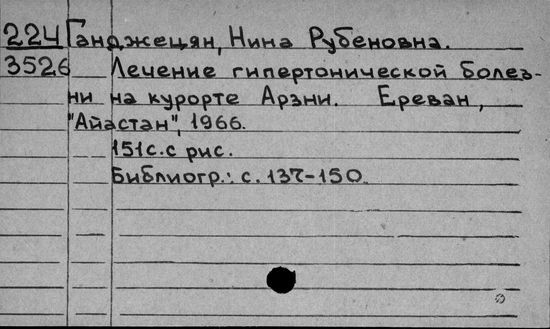 224 Ганджецян, Нина Рубеновна.
3526 Лечение гипертонической болез-
ни на курорте Арзни. Ереван,
"Айастан", 1966.
151с. с рис.
Библиогр.: с. 137-150.